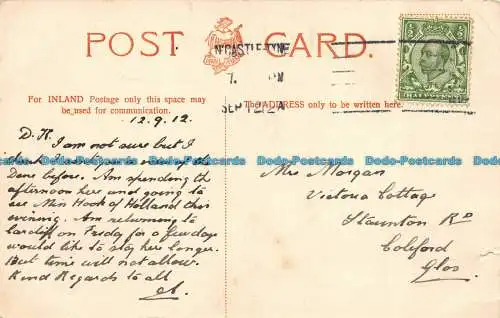 POST CARD.
N'CASTLE-TYNE
7. PM
SEP 12 12
For INLAND Postage only this space may
be used for communication.
The ADDRESS only to be written here.
12.9.12
D.H.
I am not sure but I
think
Dane before. Am spending the
afternoon here and going to
see Miss Hook of Holland this
evening. Am returning to
Cardiff on Friday for a few days
would like to stay here longer.
But time will not allow.
Kind Regards to all
Mrs Morgan
Victoria Cottage
Staunton Rd
Coleford
Glos
Dodo-Postcards Dodo-Postcards Dodo-Postcards Dodo-Postcards